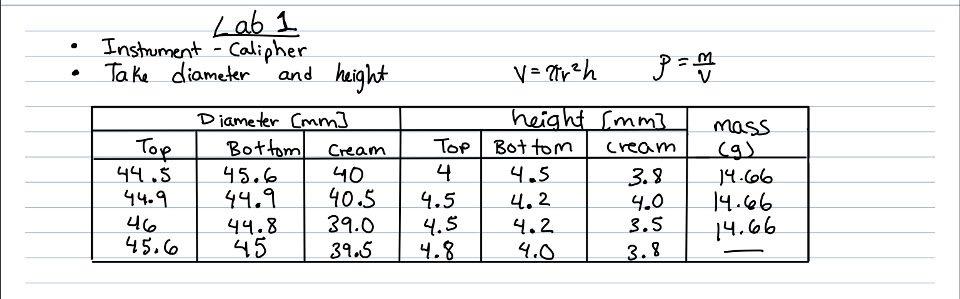 Lab 1
• Instrument - Calipher
• Take diameter and height V = πr²h ρ = m/V
Diameter [mm] height [mm] mass (g)
Top Bottom Cream Top Bottom Cream
44.5 45.6 40 4 4.5 3.8 14.66
44.9 44.9 40.5 4.5 4.2 4.0 14.66
46 44.8 39.0 4.5 4.2 3.5 14.66
45.6 45 39.5 4.8 4.0 3.8 —